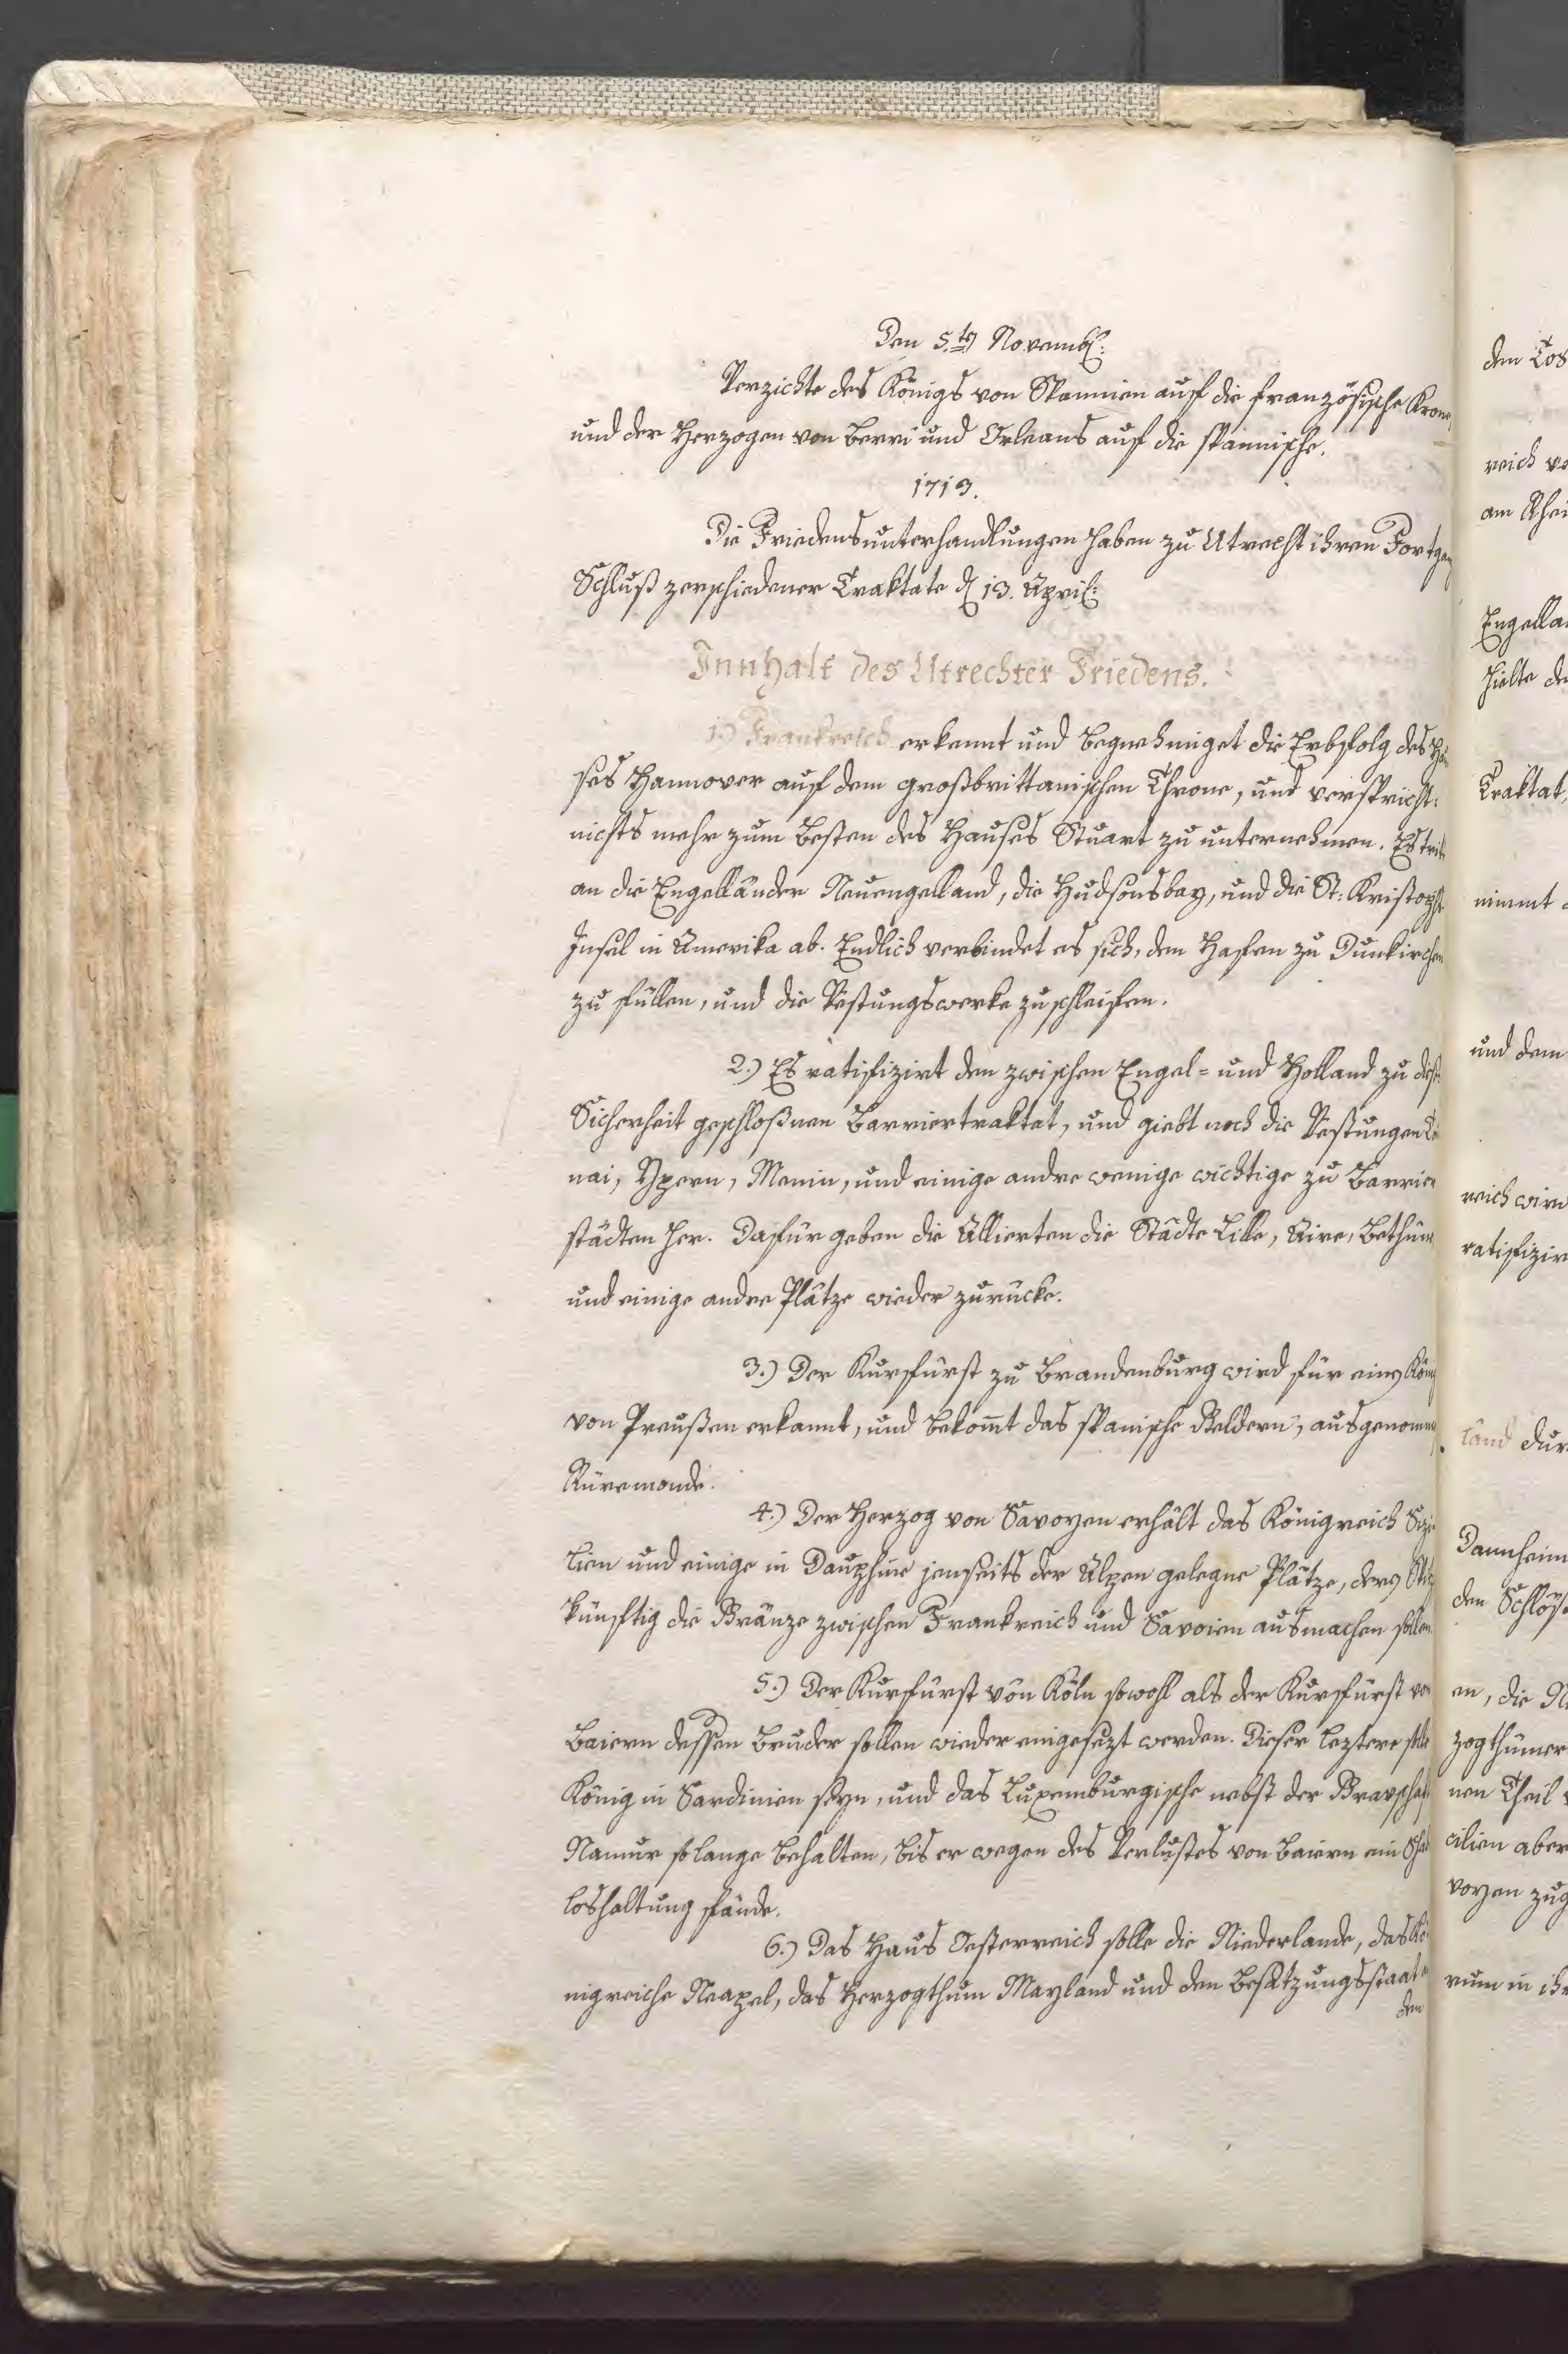 Den 5.ten Novemb:
Verzichte des Königs von Spannien auf die französische Krone,
und der Herzogen von Berri und Orleans auf die spannische.
1713.
Die Friedensunterhandlungen haben zu Utrecht ihren Fortgang
Schluß zerschiedener Traktate d 13. April:
Innhalt des Utrechter Friedens.
1.) Frankreich erkennt und begnehmiget die Erbfolg des Hau
ses Hannover auf dem großbrittanischen Throne, und verspricht:
nichts mehr zum Besten des Hauses Stuart zu unternehmen. Es tritt
an die Engelländer Neuengelland, die Hudsonsbay, und die St: Kristophs
Insel in Amerika ab. Endlich verbindet es sich, den Hafen zu Dunkirchen
zu füllen, und die Vestungswerke zu schleifen.
2.) Es ratifizirt den zwischen Engel= und Holland zu dess
Sicherheit geschloßnen Barriertraktat, und giebt noch die Vestungen
nai, Ypern, Menin, und einige andre wenige wichtige zu Barrier
städten her. Dafür geben die Allierten die Städte Lille, Aire, Bethune
und einige andre Plätze wieder zurücke.
3.) Der Kurfürst zu Brandenburg wird für einen König
von Preußen erkannt, und bekomt das spanische Geldern, ausgenommen
Rüremonde.
4.) Der Herzog von Savoyen erhält das Königreich Sizi
lien und einige in Dauphine jenseits der Alpen gelegne Plätze, deren
künftig die Gränze zwischen Frankreich und Savoien ausmachen sollen.
5.) Der Kurfürst von Köln sowohl als der Kurfürst von
Baiern dessen Bruder sollen wieder eingesezt werden. Dieser leztere solle
König in Sardinien seyn, und das Luxemburgische nebst der Gravschaft
Namur so lange behalten, bis er wegen des Verlustes von Baiern ein Schad
loshaltung fände.
6.) Das Haus Oesterreich solle die Niederlande, das Kö
nigreiche Neapel, das Herzogthum Mayland und den Besatzungsstaat
den
dem
reich
am Rhei
Engella
hielte
Traktat,
nimmt
und dem
reich wird
ratifizir
land dur
Dannheim
den Schlöß
en, die
zogthümer
nen Theil
cilien aber
voyen zug
rum in ihr